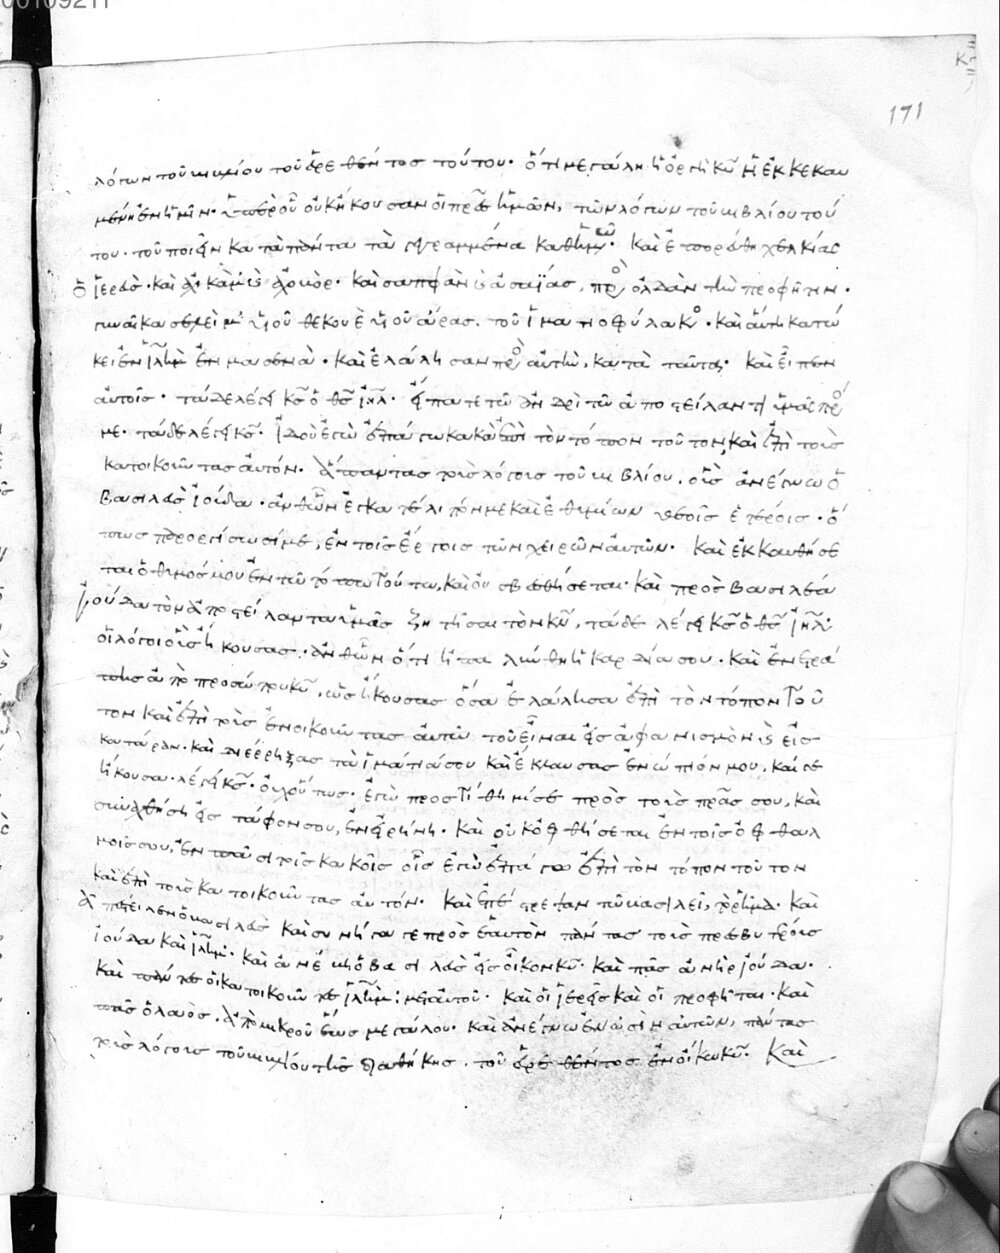 171
λόγων τοῦ βιβλίου τοῦ εὑρεθέντος τούτου· ὅτι μεγάλη ἡ ὀργὴ κυ ἡ ἐκκεκαυ
μένη ἐν ἡμῖν· ὑπὲρ οὗ οὐκ ἤκουσαν οἱ πρες ἡμῶν, τῶν λόγων τοῦ βιβλίου τού
του· τοῦ ποιεῖν κατὰ πάντα τὰ γεγραμμένα καθ ἡμῶν· καὶ ἐπορεύθη χελκίας
ὁ ἱερεὺς· καὶ ἀχικὰμ καὶ ἀχοβὸρ· καὶ σαπφὰν καὶ ἀσαΐας, πρὸς ὀλδὰν τὴν προφῆτιν·
γυναῖκα σελεὶμ υἱοῦ θεκουὲ υἱοῦ αὐρας. τοῦ ἱματιοφύλακος· καὶ αὕτη κατῴ
κει ἐν ιλημ ἐν μασενὰ· καὶ ἐλάλησαν πρὸς αὐτὴν, κατὰ ταῦτα· καὶ εἶπεν
αὐτοῖς· τάδε λέγει κς ὁ θς ιηλ· εἴπατε τῷ ἀνδρὶ τῷ ἀποστείλαντι ὑμᾶς πρός
με· τάδε λέγει κς· ἰδοὺ ἐγὼ ἐπάγω κακὰ ἐπὶ τὸν τόπον τοῦτον, καὶ ἐπὶ τοὺς
κατοικοῦντας αὐτόν· ἅπαντας τοὺς λόγους τοῦ βιβλίου. οὓς ἀνέγνω ὁ
βασιλεὺς ἰούδα· ἀνθ ὧν ἐγκατέλιπόν με καὶ ἐθυμίων θεοῖς ἑτέροις· ὅ
πως παροργίσωσί με, ἐν τοῖς ἔργοις τῶν χειρῶν αὐτῶν· καὶ ἐκκαυθήσε
ται ὁ θυμός μου ἐν τῷ τόπῳ τούτῳ, καὶ οὐ σβεσθήσεται· καὶ πρὸς βασιλέα
ἰούδα τὸν ἀποστείλαντα ὑμᾶς ζητῆσαι τὸν κν, τάδε λέγει κς ὁ θς ιηλ·
οἱ λόγοι οὓς ἤκουσας· ἀνθ ὧν ὅτι ἡπαλύνθη ἡ καρδία σου· καὶ ἐνετρά
πης ἀπὸ προσώπου κυ, ὡς ἤκουσας ὅσα ἐλάλησα ἐπὶ τὸν τόπον τοῦ
τον καὶ ἐπὶ τοὺς ἐνοικοῦντας αὐτῷ τοῦ εἶναι εἰς ἀφανισμὸν καὶ εἰς
κατάραν· καὶ διέρρηξας τὰ ἱμάτιά σου καὶ ἔκλαυσας ἐνώπιόν μου, καί γε
ἤκουσα· λέγει κς· οὐχ οὕτως· ἐγὼ προστίθημί σε πρὸς τοὺς πρας σου, καὶ
συναχθήσῃ εἰς τάφον σου, ἐν εἰρήνῃ· καὶ οὐκ ὀφθήσεται ἐν τοῖς ὀφθαλ
μοῖς σου, ἐν πᾶσι τοῖς κακοῖς οἷς ἐγὼ ἐπάγω ἐπὶ τὸν τόπον τοῦτον
καὶ ἐπὶ τοὺς κατοικοῦντας αὐτόν· καὶ ἐπέστρεψαν τῷ βασιλεῖ, τὸ ῥῆμα· καὶ
ἀπέστειλεν ὁ βασιλεὺς καὶ συνήγαγε πρὸς ἑαυτὸν πάντας τοὺς πρεσβυτέρους
ἰούδα καὶ ιλημ· καὶ ἀνέβη ὁ βασιλεὺς εἰς οἶκον κυ· καὶ πᾶς ἀνὴρ ἰούδα·
καὶ πάντες οἱ κατοικοῦντες ιλημ· μετ αὐτοῦ· καὶ οἱ ἱερεῖς καὶ οἱ προφῆται· καὶ
πᾶς ὁ λαὸς· ἀπὸ μικροῦ ἕως μεγάλου· καὶ ἀνέγνω ἐν ὠσὶν αὐτῶν, πάντας
τοὺς λόγους τοῦ βιβλίου τῆς διαθήκης. τοῦ εὑρεθέντος ἐν οἴκῳ κυ· καὶ